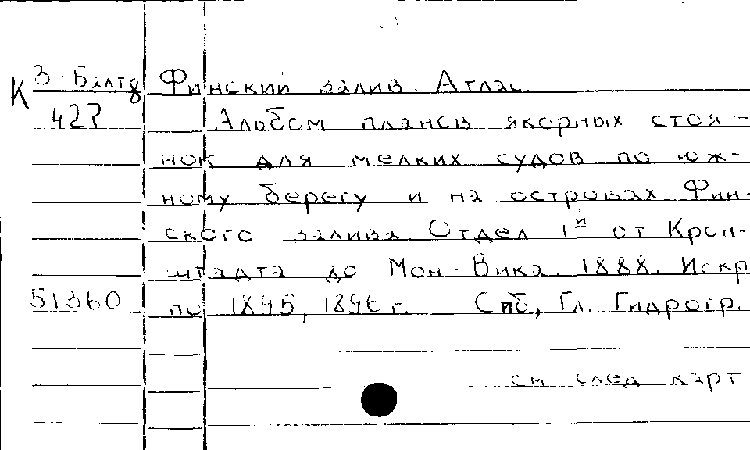 К З-Балт 8 Финский залив. Атлас.
427 Альбом планов якорных стоя-
нок для мелких судов по юж-
ному берегу и на островах Фин-
ского залива. Отдел 1й от Крон-
штадта до Мон-Вика. 1888. Испр.
51360 по 1895, 1896 г. Спб, Гл. Гидрогр.
см след карт